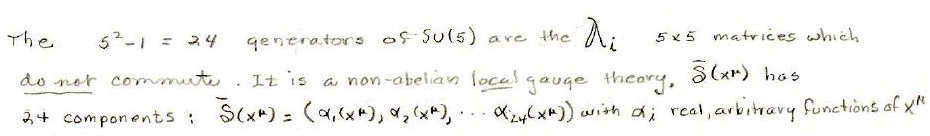 The 5²-1 = 24 generators of SU(5) are the λᵢ 5x5 matrices which
do not commute. It is a non-abelian local gauge theory. S̄(xᵘ) has
24 components: S̄(xᵘ) = (α₁(xᵘ), α₂(xᵘ), ... α₂₄(xᵘ)) with αᵢ real, arbitrary functions of xᵘ